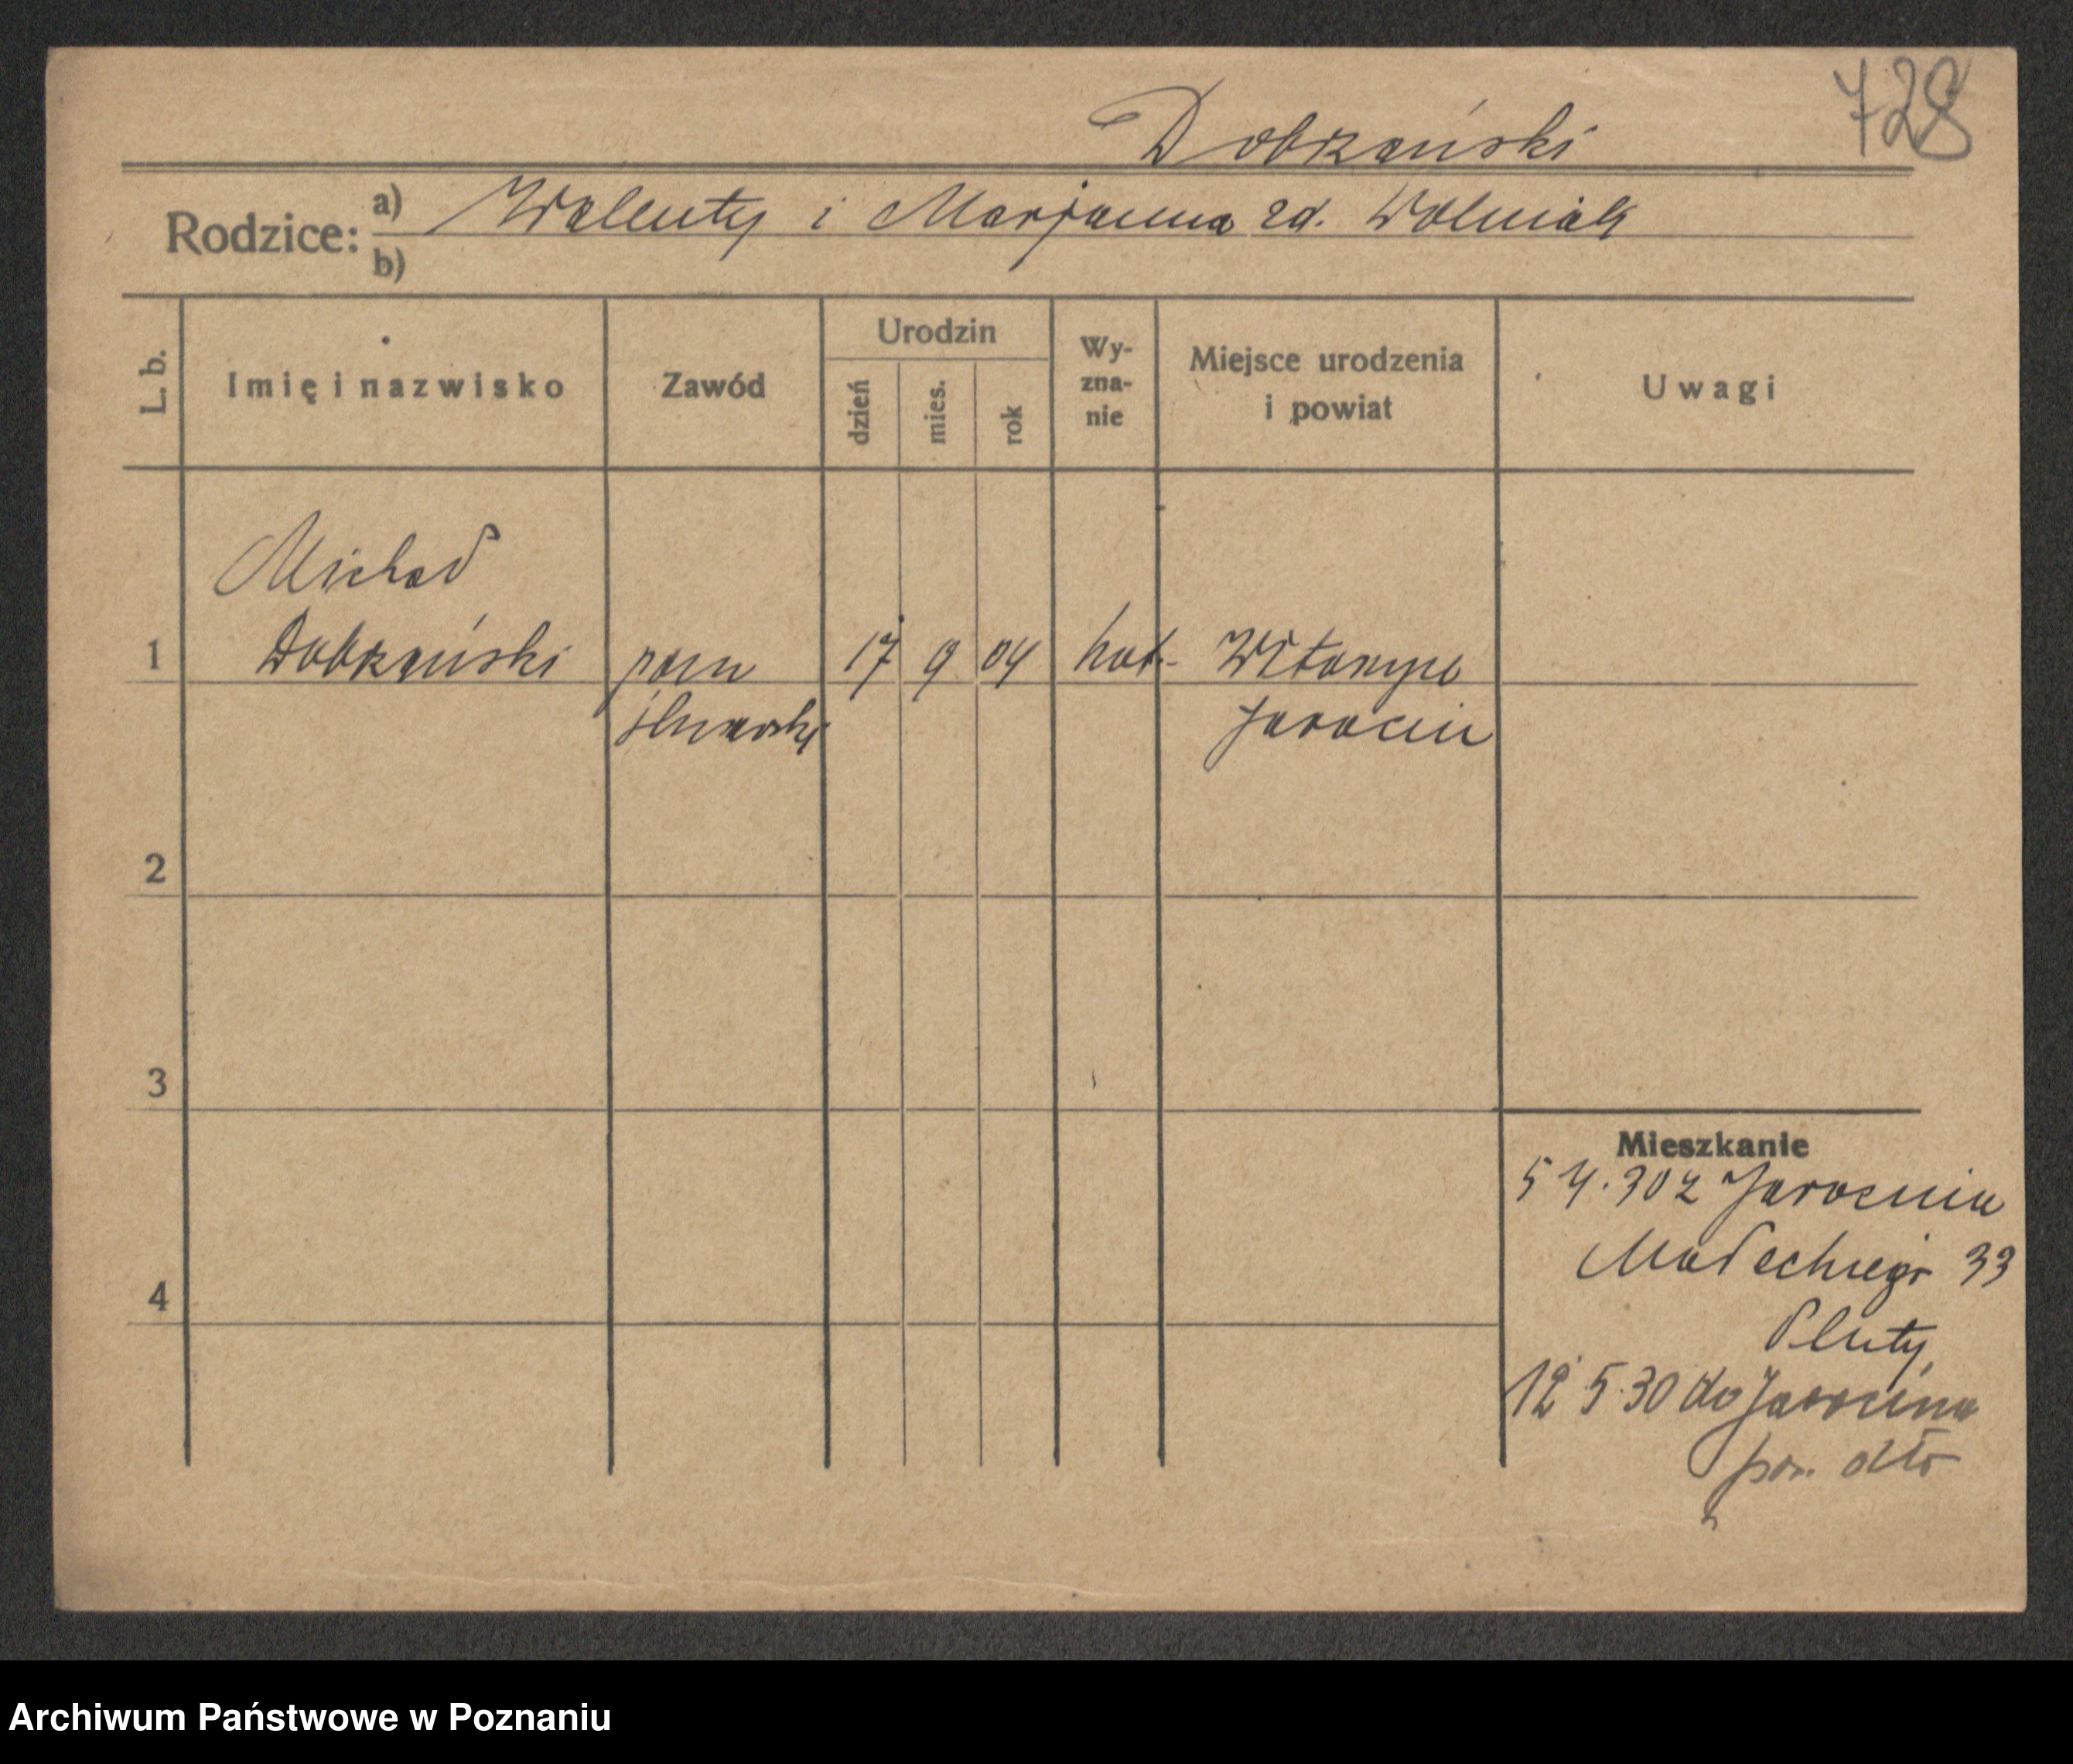 728
Dobrzański
Rodzice: a) Walenty i Marjanna zd. Wolniak
b)
L. b.
Imię i nazwisko
Zawód
Urodzin
dzień
mies.
rok
Wy-
zna-
nie
Miejsce urodzenia
i powiat
Uwagi
Michał
1 Dobrzański pom 17 9 04 kat.
ślusarski Jarocin
2
3
4
Mieszkanie
5 4. 30 z Jarocina
Małeckiego 33
Pluty
12 5 30 do Jarocina
pow. dto
Archiwum Państwowe w Poznaniu